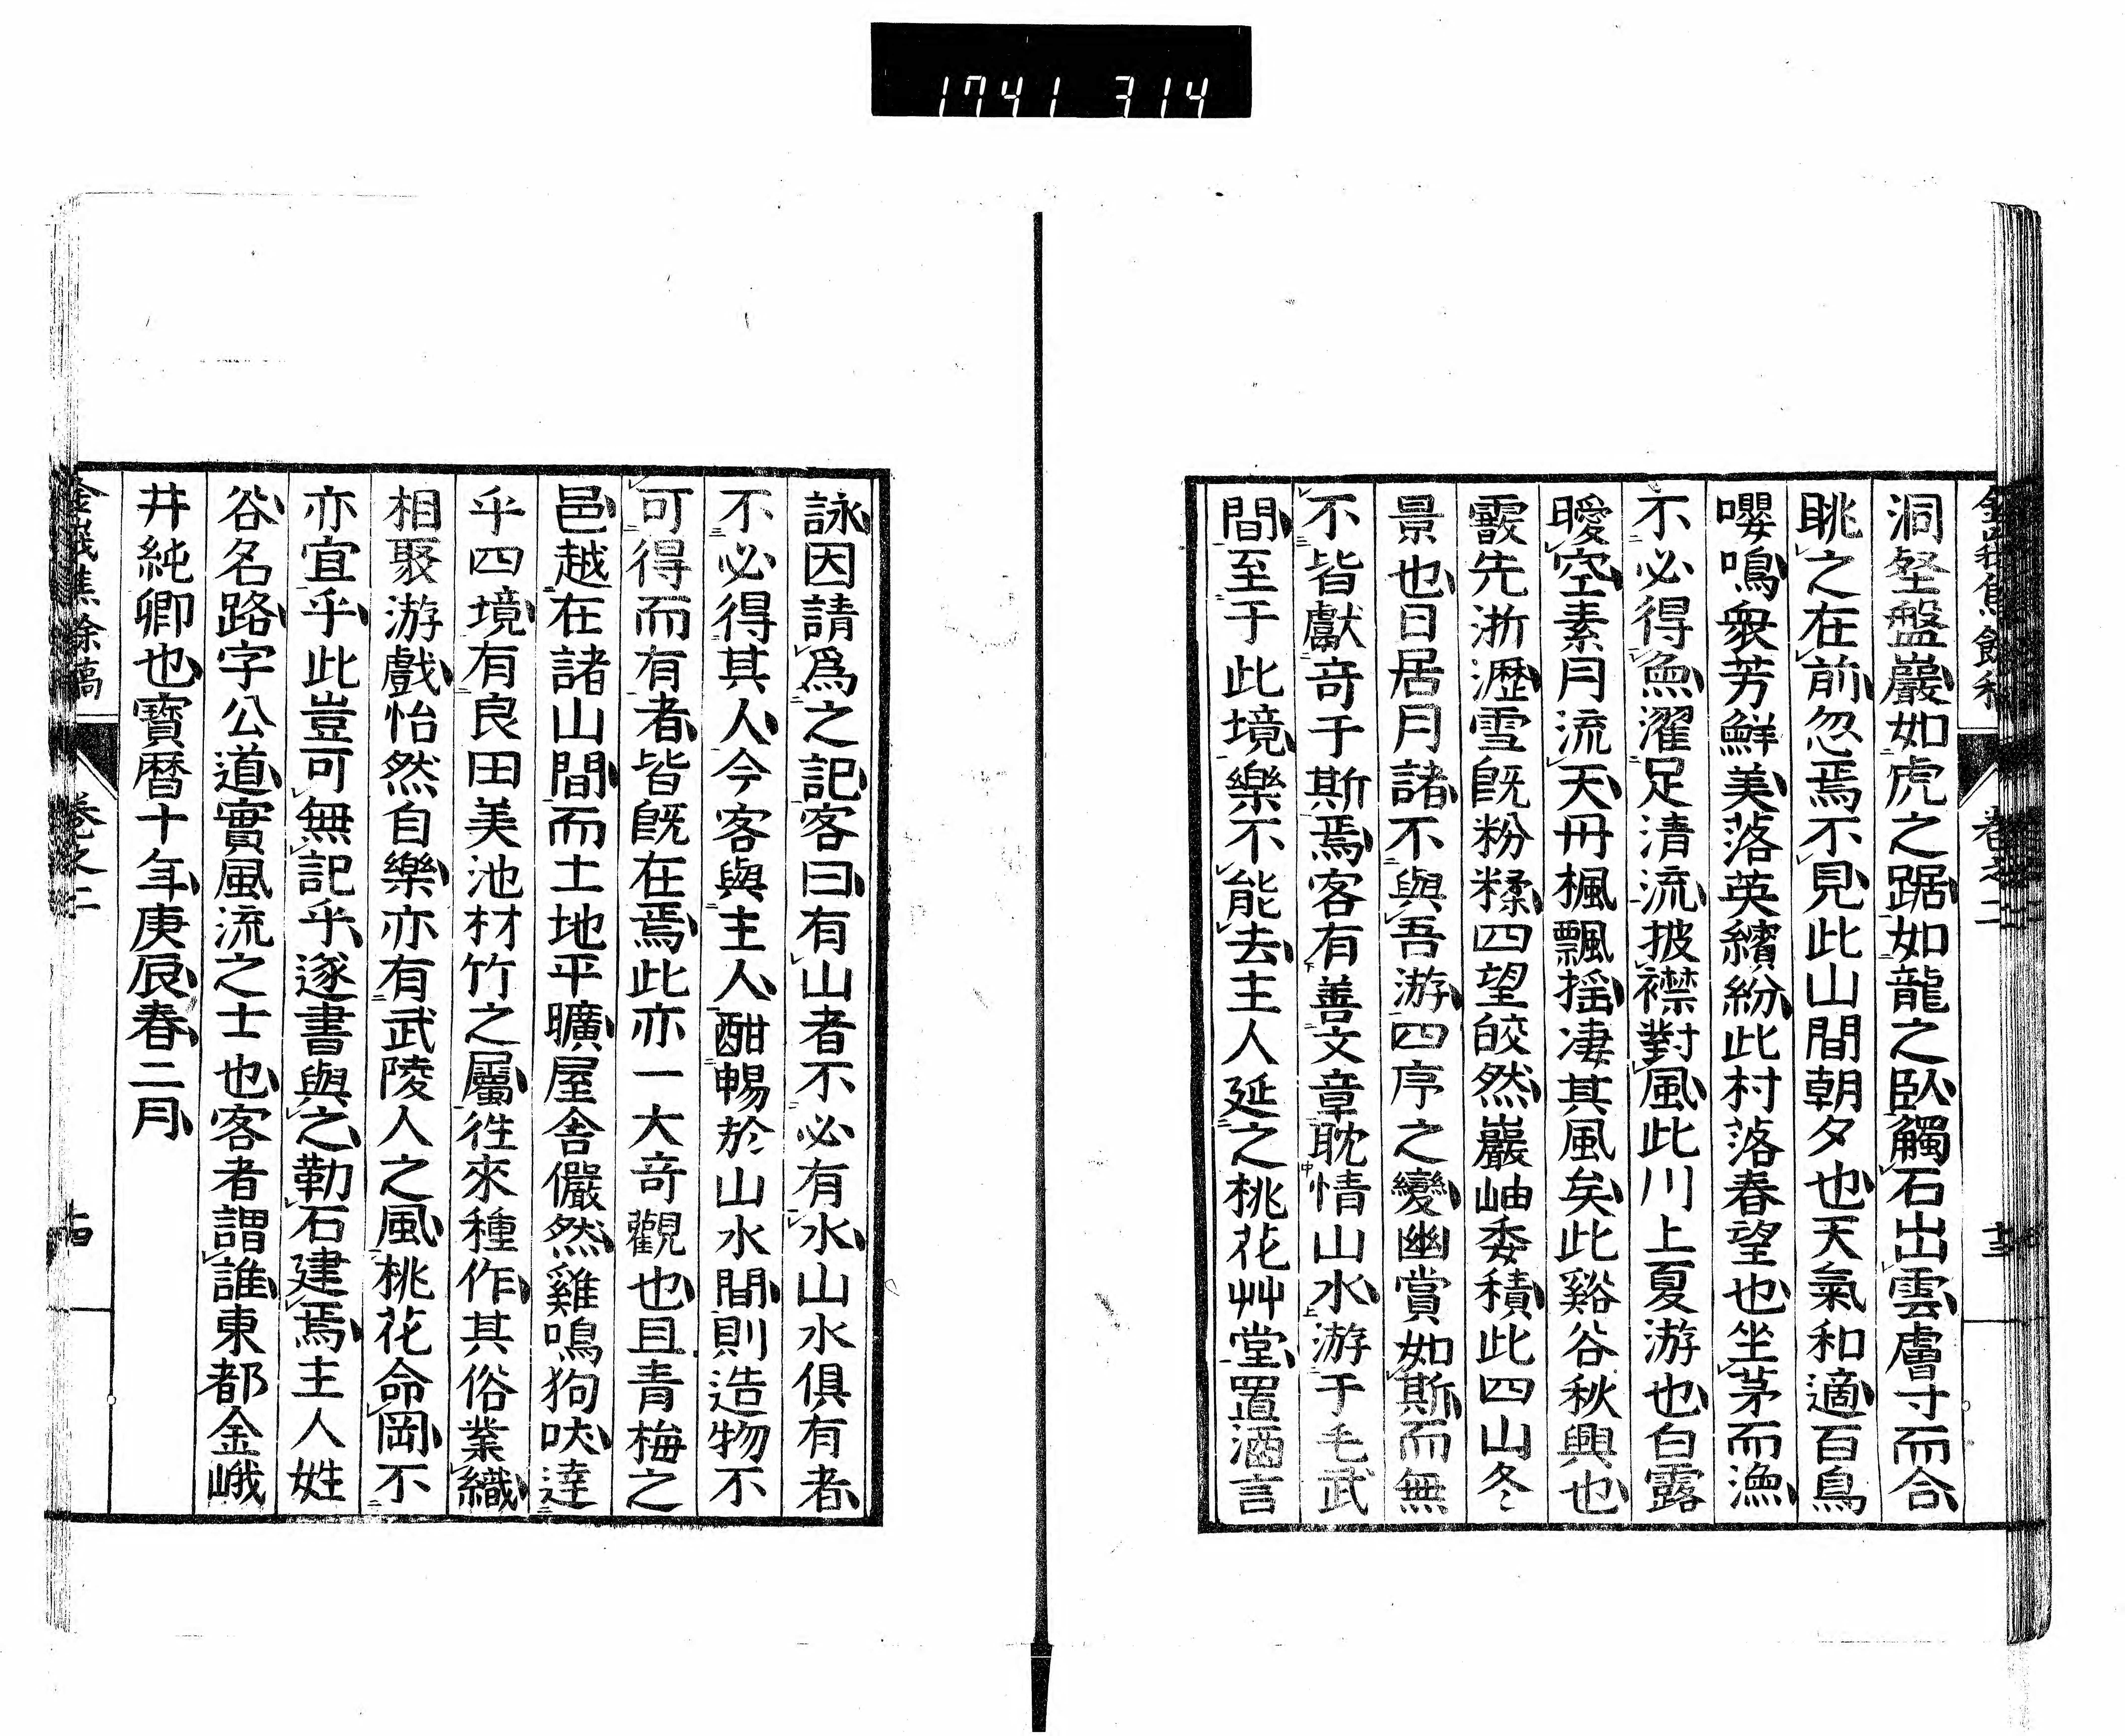 1741 314
洞壑盤巖如虎之踞如龍之臥觸石出雲膚寸而合
眺之在前忽焉不見此山間朝夕也天氣和適百鳥
嚶鳴衆芳鮮美落英繽紛此村落春望也坐茅而漁
不必得魚濯足清流披襟對風此川上夏游也白露
曖空素月流天丹楓飄揺凄其風矣此谿谷秋興也
霰先淅瀝雪既粉糅四望皎然巖岫委積此四山冬
景也日居月諸不與吾游四序之變幽賞如斯而無
不皆獻奇于斯焉客有善文章耽情山水游于毛武
間至于此境樂不能去主人延之桃花艸堂置酒言
詠因請爲之記客曰有山者不必有水山水俱有者
不必得其人今客與主人酣暢於山水間則造物不
可得而有者皆既在焉此亦一大奇觀也且青梅之
邑越在諸山間而土地平曠屋舍儼然雞鳴狗吠達
乎四境有良田美池材竹之屬徃來種作其俗業織
相聚游戲怡然自樂亦有武陵人之風桃花命岡不
亦宜乎此豈可無記乎遂書與之勒石建焉主人姓
谷名路字公道實風流之士也客者謂誰東都金峨
井純卿也寳暦十年庚辰春二月
金峨焦餘稿
卷之二
十四